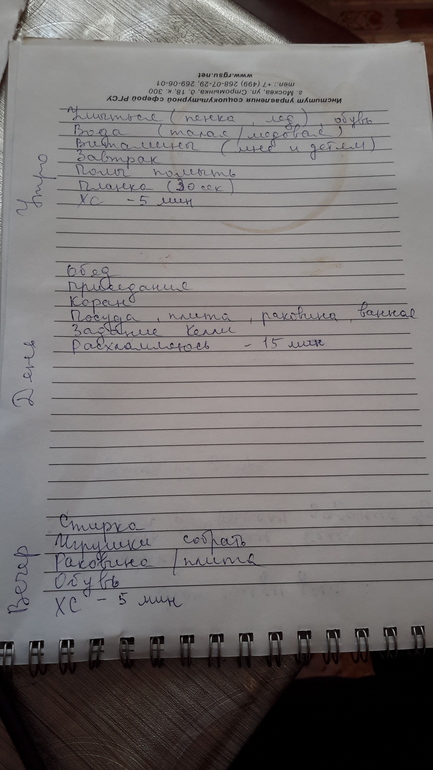 www.rgsu.net
тел.: +7 (499) 268-07-29, 269-06-01
г. Москва, ул. Стромынка, д. 18, к. 300
Институт управления социокультурной сферой РГСУ
Утро
Умыться (пенка, лед), обувь
Вода (талая/медовая)
Витамины (мне и детям)
Завтрак
Полы помыть
Планка (30 сек)
ХС - 5 мин
День
Обед
Приседания
Коран
Посуда, плита, раковина, ванная
Задание Келли
Расхламляюсь - 15 мин
Вечер
Стирка
Игрушки собрать
Раковина/плита
Обувь
ХС - 5 мин